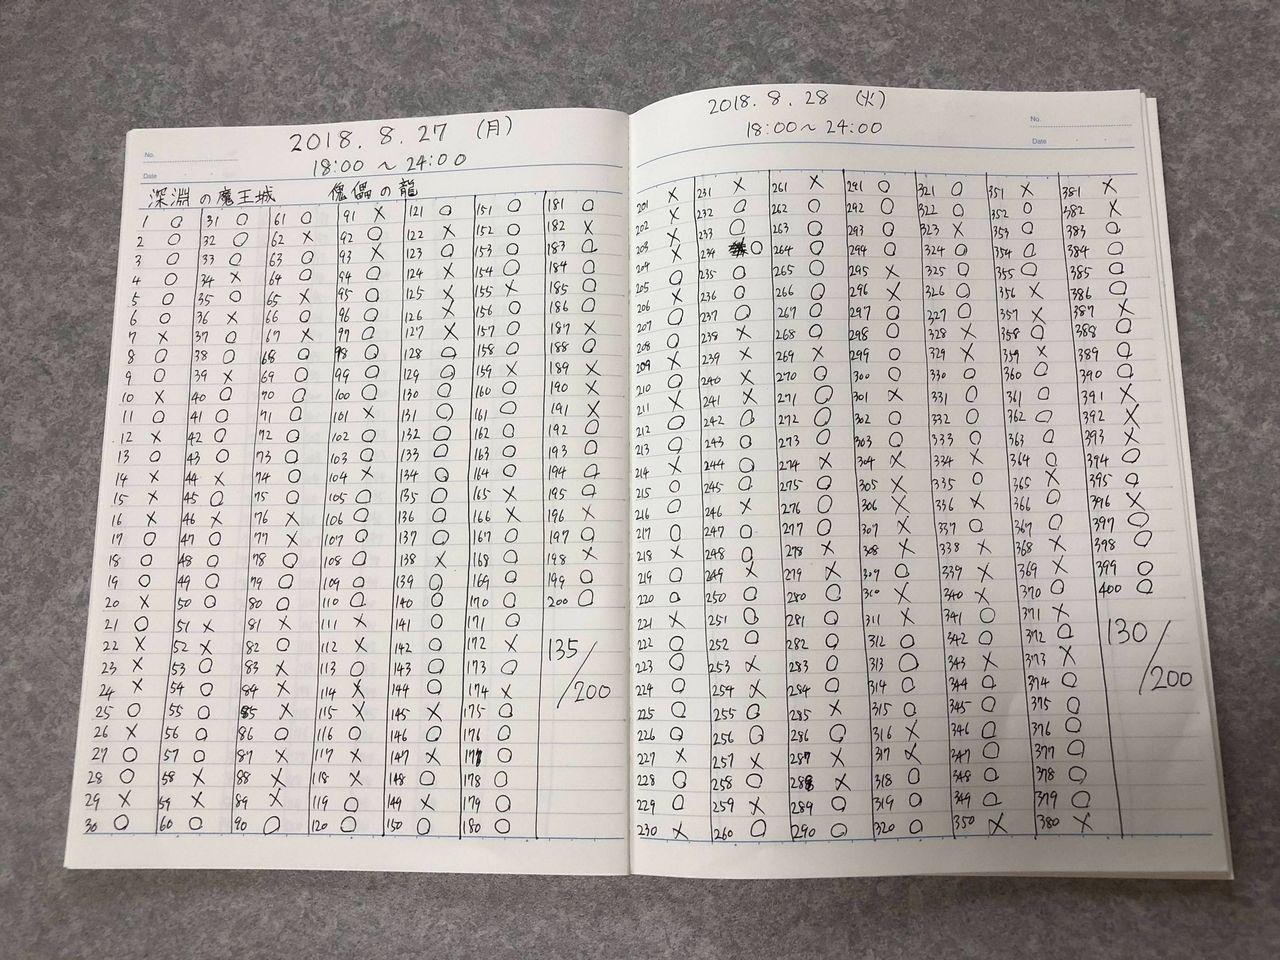 2018.8.27 (月)
18:00~24:00
No.
Date
深淵の魔王城 傀儡の龍
1 ○ 31 ○ 61 ○ 91 × 121 ○ 151 ○ 181 ○
2 ○ 32 ○ 62 × 92 ○ 122 × 152 ○ 182 ×
3 ○ 33 ○ 63 ○ 93 × 123 ○ 153 ○ 183 ○
4 ○ 34 × 64 ○ 94 ○ 124 × 154 ○ 184 ○
5 ○ 35 ○ 65 × 95 ○ 125 × 155 × 185 ○
6 ○ 36 × 66 ○ 96 ○ 126 × 156 ○ 186 ○
7 × 37 ○ 67 × 97 ○ 127 × 157 ○ 187 ×
8 ○ 38 ○ 68 ○ 98 ○ 128 ○ 158 ○ 188 ○
9 ○ 39 × 69 ○ 99 ○ 129 ○ 159 × 189 ×
10 × 40 ○ 70 ○ 100 ○ 130 ○ 160 ○ 190 ×
11 ○ 41 ○ 71 ○ 101 × 131 ○ 161 ○ 191 ×
12 × 42 ○ 72 ○ 102 ○ 132 ○ 162 ○ 192 ○
13 ○ 43 ○ 73 ○ 103 ○ 133 ○ 163 ○ 193 ○
14 × 44 × 74 ○ 104 × 134 ○ 164 ○ 194 ○
15 × 45 ○ 75 ○ 105 ○ 135 ○ 165 × 195 ○
16 × 46 × 76 × 106 ○ 136 ○ 166 × 196 ×
17 ○ 47 ○ 77 × 107 ○ 137 ○ 167 ○ 197 ○
18 ○ 48 ○ 78 ○ 108 ○ 138 × 168 ○ 198 ×
19 ○ 49 ○ 79 ○ 109 ○ 139 ○ 169 ○ 199 ○
20 × 50 ○ 80 ○ 110 ○ 140 ○ 170 ○ 200 ○
21 ○ 51 × 81 × 111 × 141 ○ 171 ○
22 × 52 × 82 ○ 112 × 142 ○ 172 ×
23 × 53 ○ 83 × 113 × 143 ○ 173 ○
24 × 54 ○ 84 × 114 × 144 ○ 174 ×
25 ○ 55 ○ 85 × 115 × 145 × 175 ○
26 × 56 ○ 86 ○ 116 ○ 146 ○ 176 ○
27 ○ 57 ○ 87 × 117 × 147 × 177 ○
28 ○ 58 × 88 × 118 × 148 ○ 178 ○
29 × 59 × 89 × 119 ○ 149 × 179 ○
30 ○ 60 ○ 90 ○ 120 ○ 150 ○ 180 ○
135/200
2018.8.28 (火)
18:00~24:00
No.
Date
201 × 231 × 261 × 291 ○ 321 ○ 351 × 381 ×
202 × 232 ○ 262 ○ 292 ○ 322 ○ 352 ○ 382 ×
203 × 233 ○ 263 ○ 293 ○ 323 × 353 ○ 383 ○
204 × 234 ○ 264 ○ 294 ○ 324 ○ 354 ○ 384 ○
205 ○ 235 ○ 265 ○ 295 × 325 ○ 355 ○ 385 ○
206 × 236 ○ 266 ○ 296 × 326 ○ 356 × 386 ○
207 ○ 237 ○ 267 ○ 297 ○ 327 ○ 357 × 387 ×
208 ○ 238 × 268 ○ 298 ○ 328 × 358 ○ 388 ○
209 × 239 × 269 × 299 ○ 329 × 359 × 389 ○
210 ○ 240 × 270 ○ 300 ○ 330 ○ 360 ○ 390 ○
211 × 241 × 271 ○ 301 × 331 ○ 361 ○ 391 ×
212 ○ 242 ○ 272 ○ 302 ○ 332 ○ 362 ○ 392 ×
213 ○ 243 ○ 273 ○ 303 ○ 333 ○ 363 ○ 393 ×
214 × 244 ○ 274 × 304 × 334 × 364 ○ 394 ○
215 ○ 245 ○ 275 ○ 305 × 335 ○ 365 × 395 ○
216 ○ 246 × 276 ○ 306 × 336 × 366 ○ 396 ×
217 ○ 247 ○ 277 ○ 307 × 337 ○ 367 ○ 397 ○
218 × 248 ○ 278 × 308 × 338 × 368 × 398 ○
219 ○ 249 × 279 × 309 ○ 339 × 369 × 399 ○
220 ○ 250 ○ 280 ○ 310 × 340 × 370 ○ 400 ○
221 × 251 ○ 281 ○ 311 × 341 ○ 371 ×
222 ○ 252 ○ 282 ○ 312 ○ 342 ○ 372 ○
223 ○ 253 × 283 ○ 313 ○ 343 × 373 ×
224 ○ 254 × 284 ○ 314 ○ 344 ○ 374 ○
225 ○ 255 ○ 285 × 315 ○ 345 ○ 375 ○
226 ○ 256 ○ 286 ○ 316 × 346 ○ 376 ○
227 × 257 × 287 × 317 × 347 ○ 377 ○
228 ○ 258 ○ 288 × 318 ○ 348 ○ 378 ○
229 ○ 259 × 289 ○ 319 ○ 349 ○ 379 ○
230 × 260 ○ 290 ○ 320 ○ 350 × 380 ×
130/200